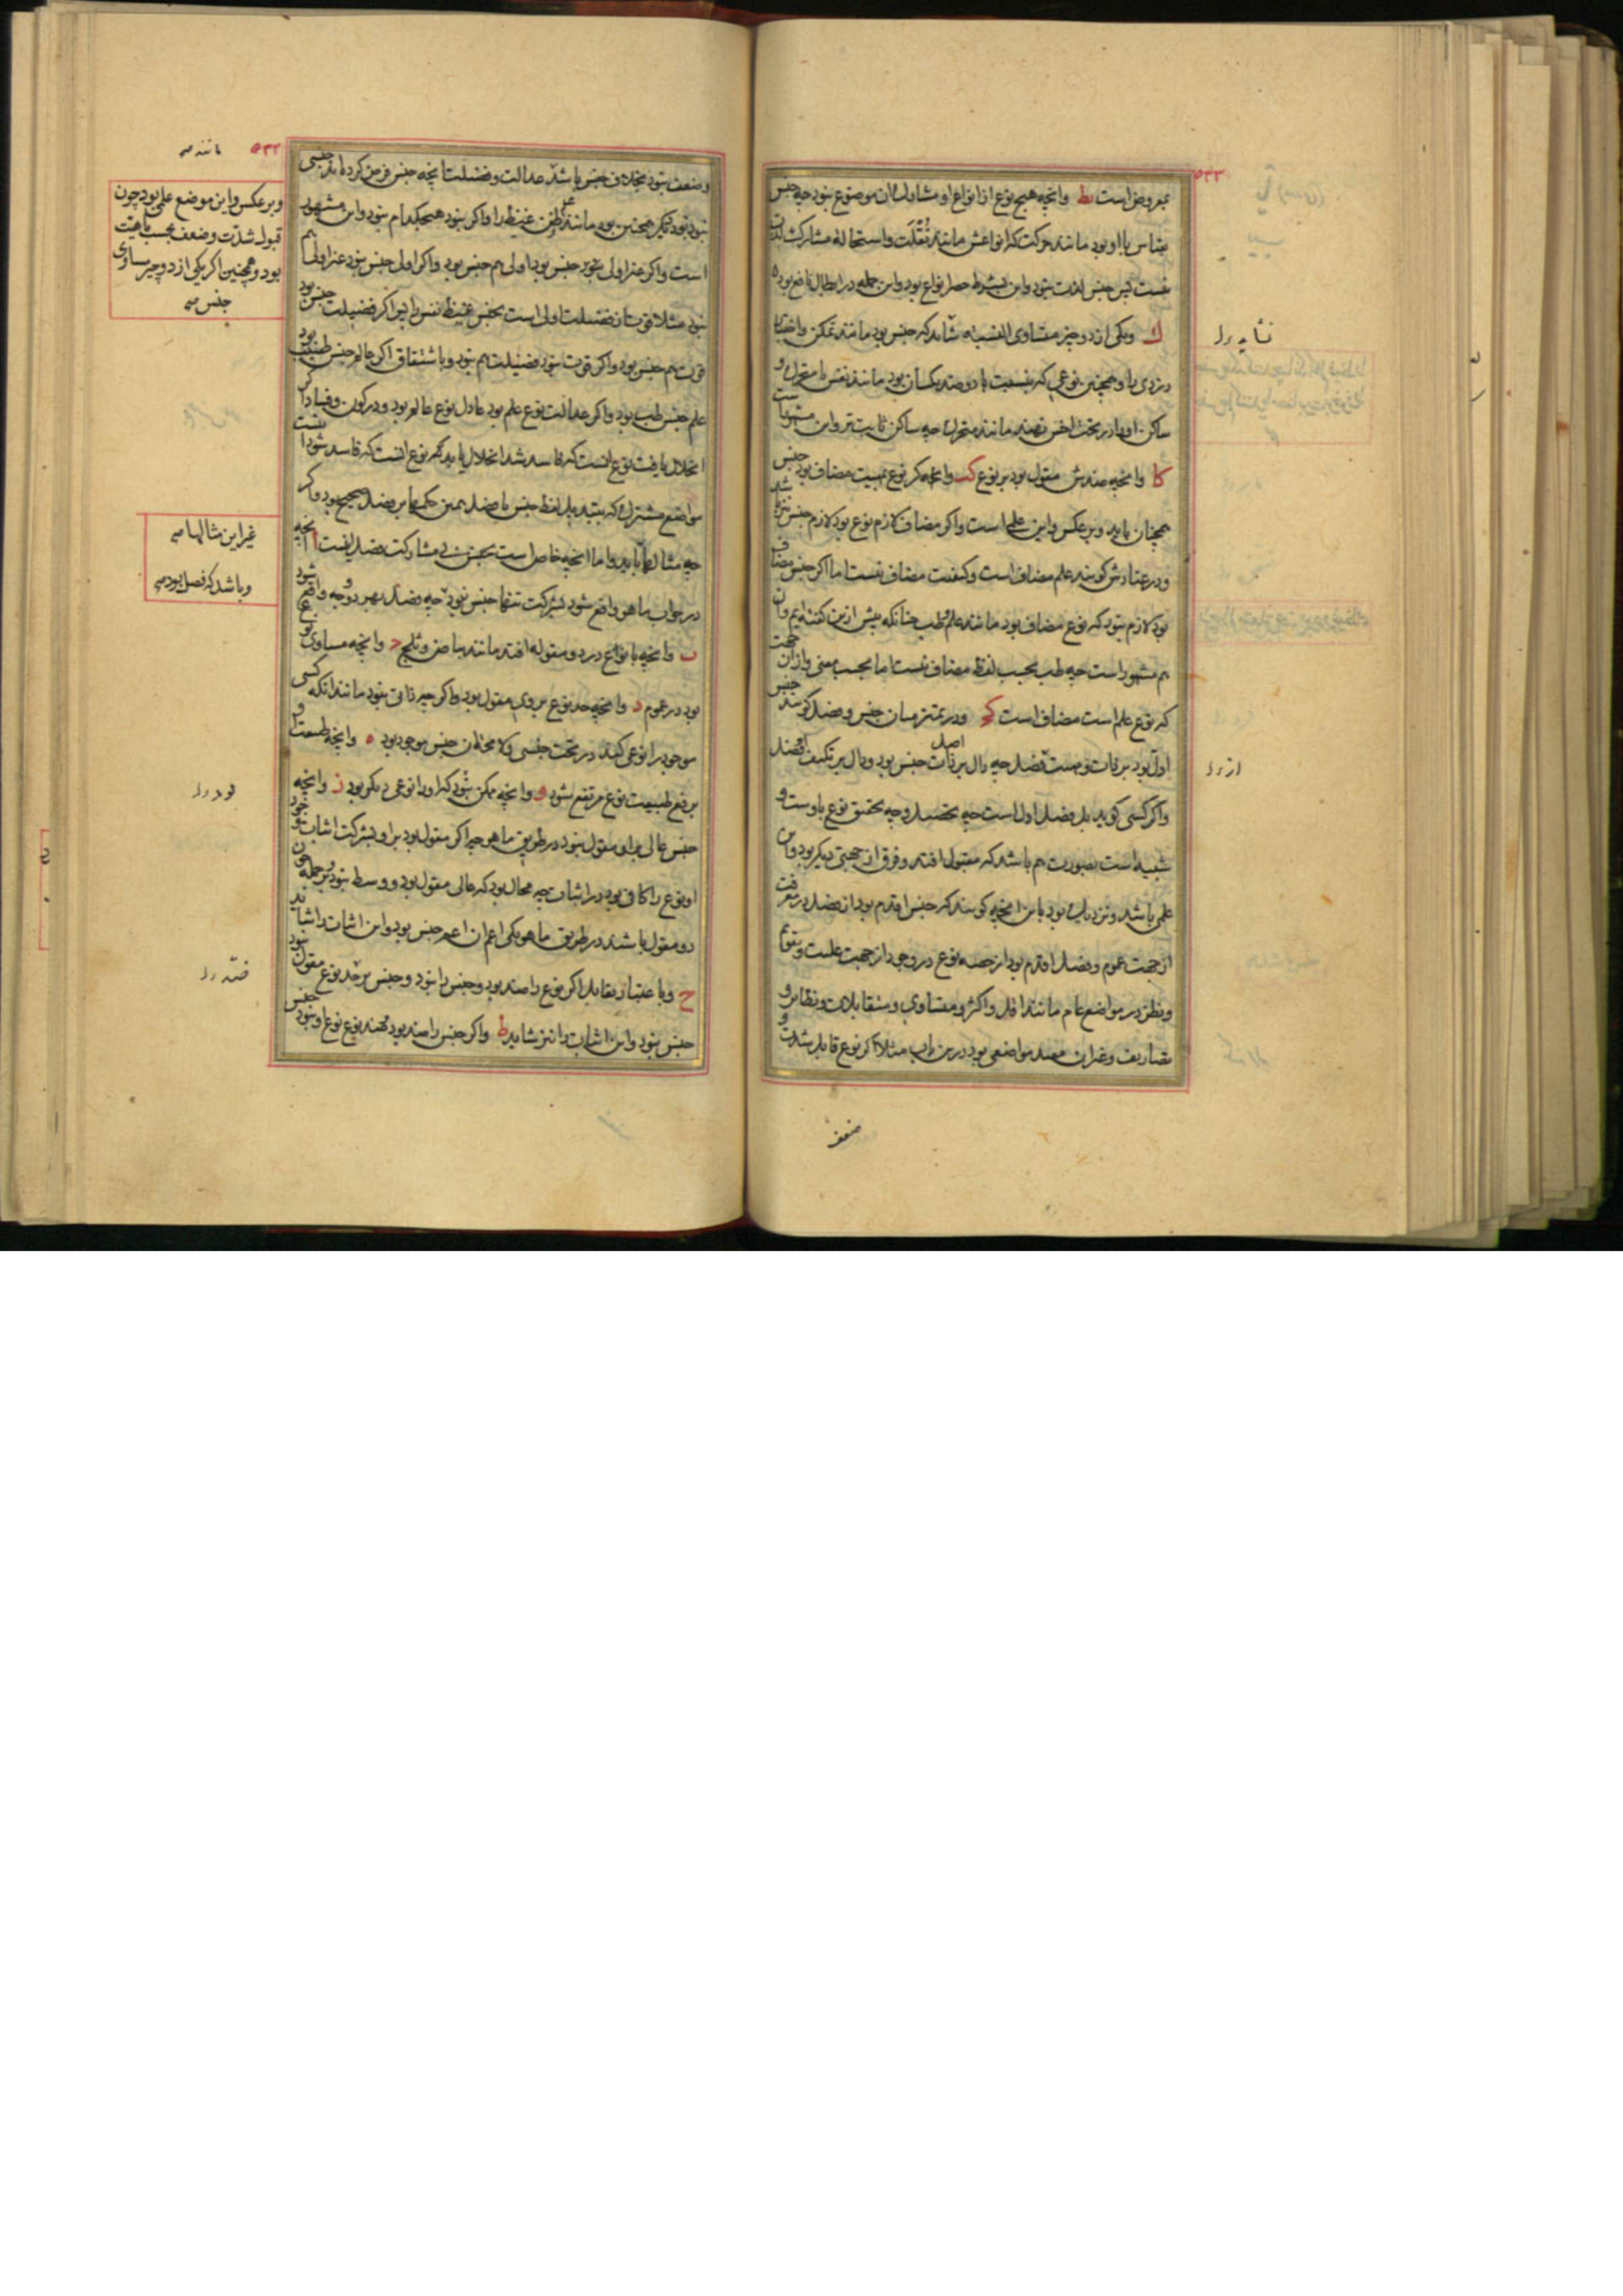 بمعروض است یط وانچه هیچ نوع از انواع او مشاول ان موضوع نبود چه جنس
بقیاس با او بود مانند حرکت که انواعش مانند نُقلَت و استحاله مشارک لذت
نیست پس جنس لذت نبود و این بشرط حصر انواع بود و این جمله در ابطال نافع بود
ک ویکی از دو چیز متساوی النسبه شاید که جنس بود مانند تمکن و اختیار
دزدی را و همچنین نوعی که بنسبت با دو ضد یکسان بود مانند نفس با متحرک و
ساکن او را در تحت اخس نهند مانند متحرک چه ساکن ثابت تر و این مشهور است
کا وانچه ضدش مقول بود بر نوع کب وانچه کر نوع بنسبت مضاف بود جنس
همچنان باید و بر عکس و این علمی است واکر مضاف لازم نوع بود لازم جنس نیز باشد
و در عنادش کویند علم مضاف است و کیفیت مضاف نیست اما اکر جنس مضاف
بود لازم نبود که نوع مضاف بود مانند علم و طب چنانکه پیش ازین کفته ایم و ان
هم مشهور است چه طب بحسب لفظ مضاف نیست اما بحسب معنی و ازان جهت
که نوع علم است مضاف است کج و در تمییز میان جنس و فصل کویند جنس
اول بود بر ذات و هست فصل چه دال بر اصل ذات جنس بود و دال بر تکیف او فصل
واکر کسی کوید بل فصل اول است چه تحصیل و چه تحقیق نوع باوست و
شبیه است بصورت هم باشد که مقبول افتد و فرق از جهتی دیکر بود و این
علمی باشد و نزدیک بود باین انچه کویند که جنس اقدم بود از فصل در معرفت
از جهت عموم و فصل اقدم بود از حصه نوع در وجود از جهت علیت و تقوم
و نظر در مواضع عام مانند اقل و اکثر و متساوی و متقابلات و نظایر و
تصاریف و غیر ان مفید مواضعی بود درین باب مثلا اکر نوع قابل شدت و
ضعف
نشاید ول
از ول
۵۳۲
مانند صه
وضعف نبود بخلاف جنس باشد عدالت و فضیلت انچه جنس فرض کرده اند جنس
نبود و دیکر همچنین بود مانند غم و ظن غیظ را واکر نبود هیچکدام نبود و این مشهور
است واکر غیر اولی بنوع جنس بود اولی هم جنس بود واکر اولی جنس نبود غیر اولی هم
نبود مثلا قوت از فضیلت اولی است بجنس غیظ نفس پس اکر فضیلت جنس بود
قوت هم جنس بود واکر قوت نبود فضیلت هم نبود و باشتقاق اکر عالم جنس طبیب بود
علم جنس طب بود واکر عدالت نوع علم بود عادل نوع عالم بود و در کون و فساد اکر
انحلال یافت نوع انست که فاسد شد انحلال یابد هم نوع انست که فاسد شود ا
مواضع مشترک که بتبدیل لفظ جنس با فصل همین حکمها بر فصل صحیح بود واکر
چه مثالها باید و اما انچه خاص است بجنس بی مشارکت فصل اینست ا انچه
در جواب ما هو واقع شود بشرکت تنها جنس نبود چه فصل بهر دو وجه واقع شود
ب وانچه با نوع در دو مقوله افتد مانند بیاض و ثلج ج وانچه مساوی نوع
بود در عموم د وانچه حد نوع بر وی مقول بود واکر چه ذاتی نبود مانند انکه کسی
موجود را نوعی کند در تحت جنسی و لا محاله ان جنس موجود بود ه وانچه طبیعت او
برفع طبیعت نوع مرتفع شود و وانچه ممکن نبود که او را نوعی دیکر بود ز وانچه
جنس عالی بر او مقول نبود در طریق ما هو چه اکر مقول بود بر او بشرکت اثبات خود
او نوع را کافی بود در اثبات چه محال بود که عالی مقول بود و وسط نبود بر جمله چون
دو مقول باشند در طریق ما هو یکی اعم ان اعم جنس بود و این اثبات را شاید
ح و با عتبار تقابل اکر نوع را ضد بود و جنس را نبود و جنس بر ضد نوع مقول نبود
جنس نبود و این اثبات را نیز شاید ط واکر جنس را ضد بود و ضد نوع نوع او نبود جنس
وبر عکس و این موضع علمی بود چون
قبول شدت وضعف بحسب ماهیت
بود و همچنین اکر یکی از دو چیز مساوی
جنس صه
غیر این مثالها صه
وباشد که فصل بود صه
بود ول
ضد ول